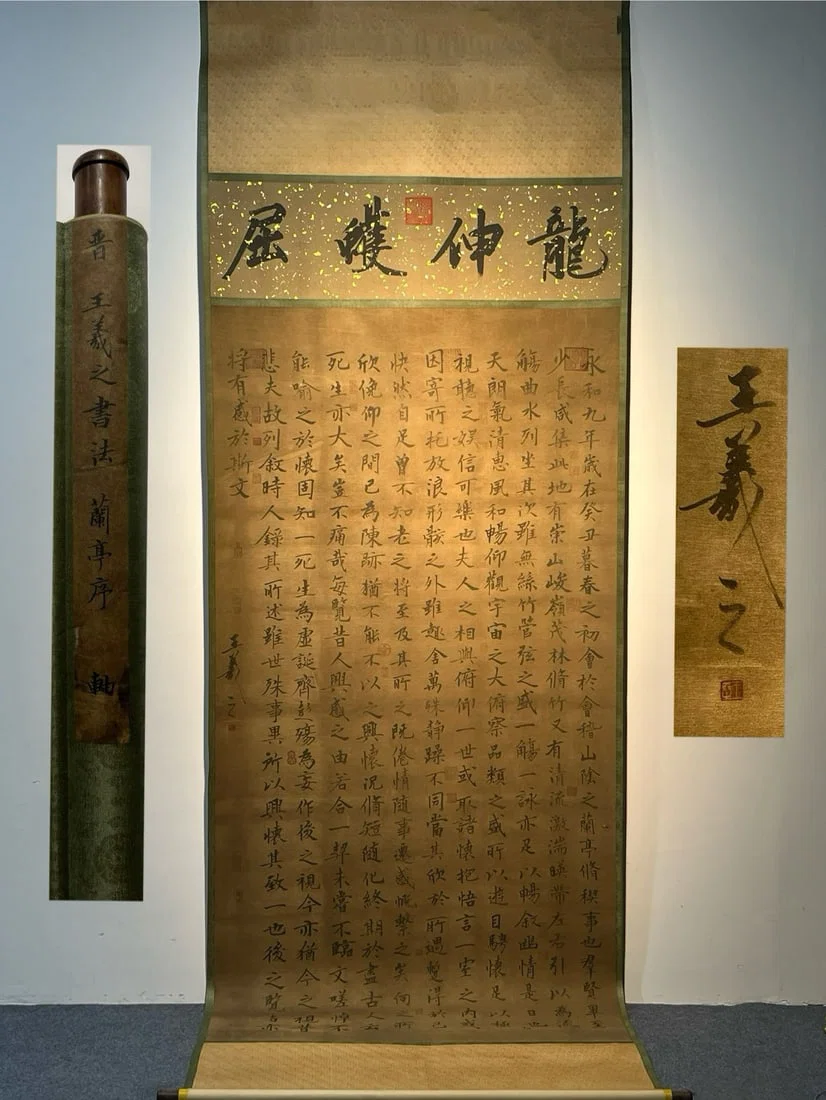 龍伸蠖屈
永和九年歲在癸丑暮春之初會於會稽山陰之蘭亭脩稧事也羣賢畢至
少長咸集此地有崇山峻嶺茂林脩竹又有清流激湍暎帶左右引以為流
觴曲水列坐其次雖無絲竹管弦之盛一觴一詠亦足以暢敘幽情是日也
天朗氣清惠風和暢仰觀宇宙之大俯察品類之盛所以遊目騁懷足以極
視聽之娛信可樂也夫人之相與俯仰一世或取諸懷抱悟言一室之內或
因寄所托放浪形骸之外雖趣舍萬殊靜躁不同當其欣於所遇蹔得於己
快然自足曾不知老之將至及其所之既倦情隨事遷感慨繫之矣向之所
欣俛仰之間已為陳跡猶不能不以之興懷況脩短隨化終期於盡古人云
死生亦大矣豈不痛哉每覽昔人興感之由若合一契未嘗不臨文嗟悼不
能喻之於懷固知一死生為虛誕齊彭殤為妄作後之視今亦猶今之視昔
悲夫故列敘時人錄其所述雖世殊事異所以興懷其致一也後之覽者亦
將有感於斯文
王羲之
王羲之
晉 王羲之書法 蘭亭序 軸